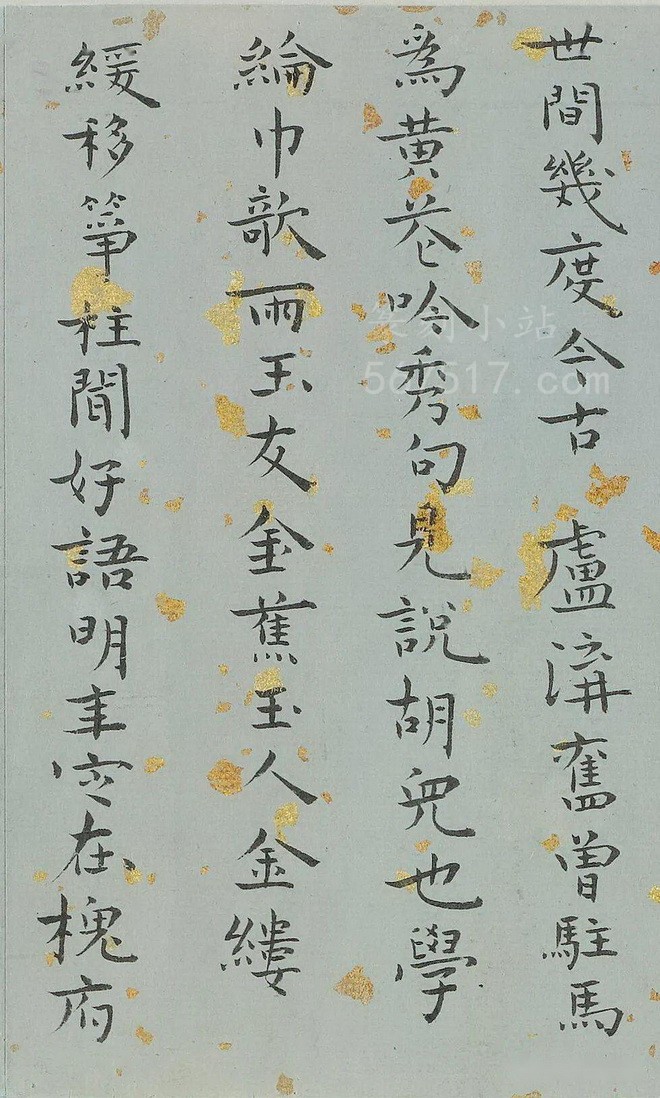 世間幾度今古 盧溝舊曾駐馬
為黃花吟秀句見說胡兒也學
綸巾欹雨玉友金蕉玉人金縷
緩移箏柱聞好語明年定在槐府
篆刻小站